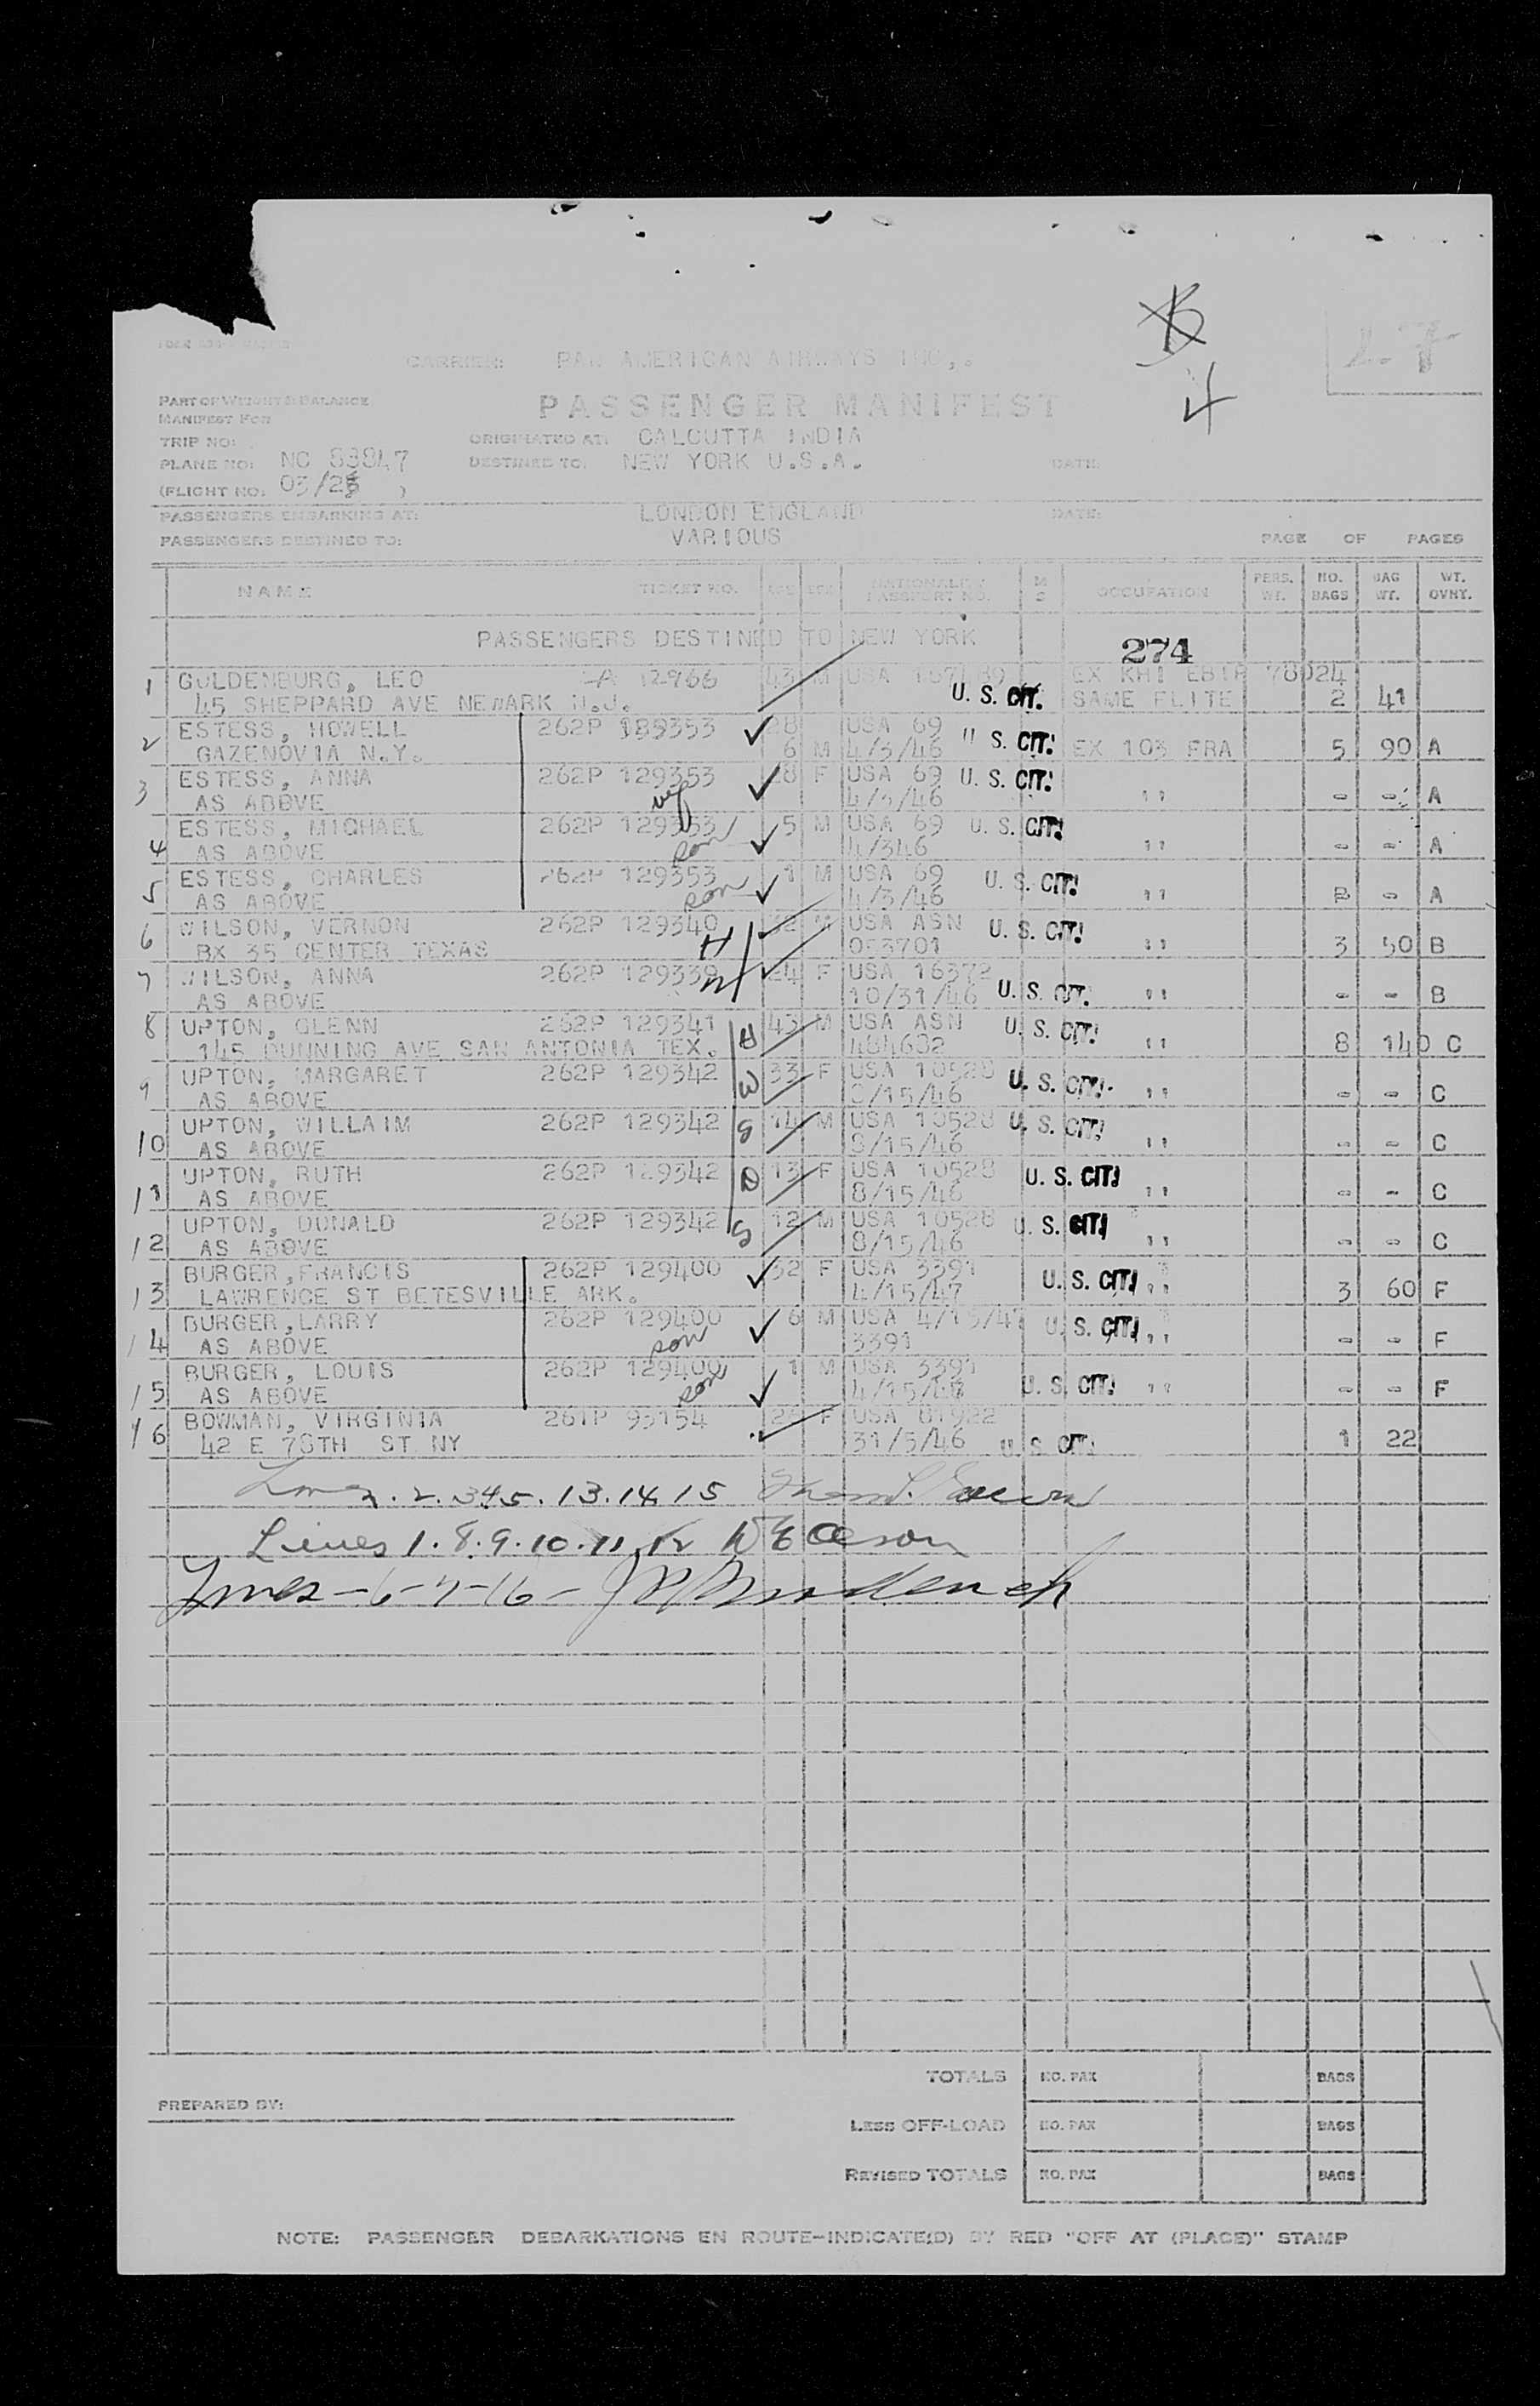 CARRIER: PAN AMERICAN AIRWAYS INC,.
PART OF WEIGHT & BALANCE
MANIFEST FOR
PASSENGER MANIFEST
TRIP NO: ORIGINATED AT: CALCUTTA INDIA
PLANE NO: NC 88847 DESTINED TO: NEW YORK U.S.A. DATE:
(FLIGHT NO. 03/28 )
PASSENGERS EMBARKING AT: LONDON ENGLAND DATE:
PASSENGERS DESTINED TO: VARIOUS PAGE OF PAGES
NAME TICKET NO. AGE SEX NATIONALITY PASSPORT NO. M S OCCUPATION PERS. WT. NO. BAGS BAG WT. WT. OVNY.
PASSENGERS DESTINED TO NEW YORK 274
1 GOLDENBURG, LEO LA 12966 43 M USA EX KHI 78024
45 SHEPPARD AVE NEWARK N.J. U. S. CIT. SAME FLITE 2 41
2 ESTESS, HOWELL 262P 129353 28 USA 69
GAZENOVIA N.Y. 6 M 4/3/46 U S. CIT! EX 103 FRA 5 90 A
3 ESTESS, ANNA 262P 129353 28 F USA 69 U. S. CIT!
AS ABOVE wf 4/3/46 '' - - A
4 ESTESS, MICHAEL 262P 129353 5 M USA 69 U. S. CIT!
AS ABOVE son 4/346 '' - - A
5 ESTESS, CHARLES 262P 129353 1 M USA 69 U. S. CIT!
AS ABOVE son 4/3/46 '' - - A
6 WILSON, VERNON 262P 129340 H 32 M USA ASN U. S. CIT!
BX 35 CENTER TEXAS 053701 '' 3 50 B
7 WILSON, ANNA 262P 129339 W 24 F USA 16372
AS ABOVE 10/31/46 U. S. CIT. '' - - B
8 UPTON, GLENN 262P 129341 H 43 M USA ASN U. S. CIT!
145 DUNNING AVE SAN ANTONIA TEX. 484632 '' 8 140 C
9 UPTON, MARGARET 262P 129342 W 33 F USA 10528 U. S. CIT!
AS ABOVE 8/15/46 '' - - C
10 UPTON, WILLAIM 262P 129342 S 14 M USA 10528 U. S. CIT!
AS ABOVE 8/15/46 '' - - C
11 UPTON, RUTH 262P 129342 D 13 F USA 10528 U. S. CIT!
AS ABOVE 8/15/46 '' - - C
12 UPTON, DONALD 262P 129342 S 12 M USA 10528 U. S. CIT!
AS ABOVE 8/15/46 '' - - C
13 BURGER,FRANCIS 262P 129400 32 F USA 3391 U. S. CIT!
LAWRENCE ST BETESVILLE ARK. 4/15/47 '' 3 60 F
14 BURGER,LARRY 262P 129400 6 M USA 4/15/47 U. S. CIT!
AS ABOVE son 3391 '' - - F
15 BURGER, LOUIS 262P 129400 1 M USA 3391
AS ABOVE son 4/15/48 U. S. CIT! '' - - F
16 BOWMAN, VIRGINIA 261P 95154 F USA 81922
42 E 78TH ST NY 31/5/46 U S CIT. 1 22
2.345.13.14 15
Lines 1.8.9.10.11.12
Lines-6-7-16-
TOTALS NO. PAX BAGS
PREPARED BY:
LESS OFF-LOAD NO. PAX BAGS
REVISED TOTALS NO. PAX BAGS
NOTE: PASSENGER DEBARKATIONS EN ROUTE-INDICATE(D) BY RED "OFF AT (PLACE)" STAMP